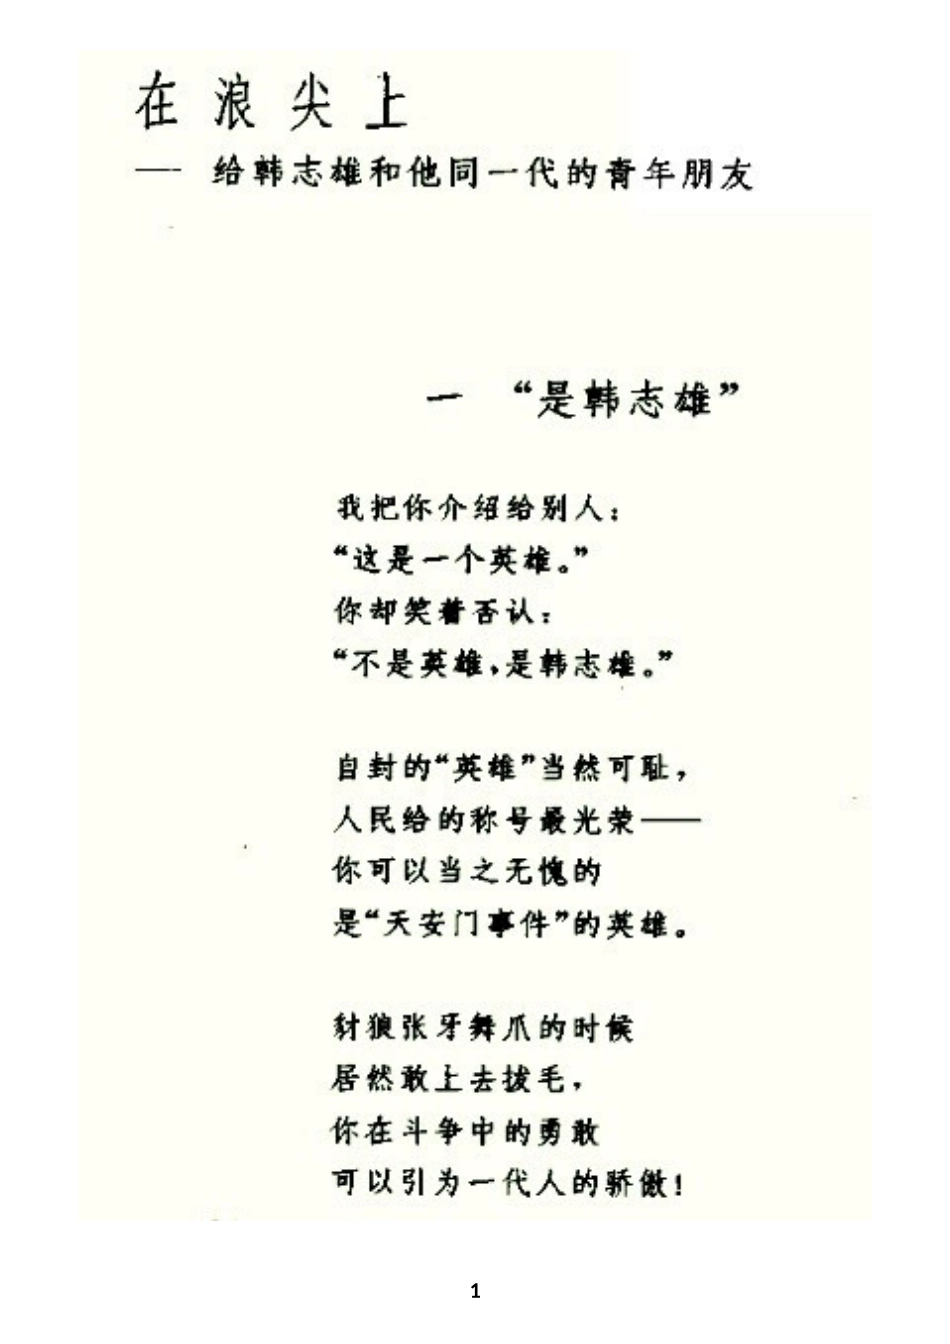 在浪尖上
—— 给韩志雄和他同一代的青年朋友
一 “是韩志雄”
我把你介绍给别人：
“这是一个英雄。”
你却笑着否认：
“不是英雄，是韩志雄。”
自封的“英雄”当然可耻，
人民给的称号最光荣——
你可以当之无愧的
是“天安门事件”的英雄。
豺狼张牙舞爪的时候
居然敢上去拔毛，
你在斗争中的勇敢
可以引为一代人的骄傲！
1